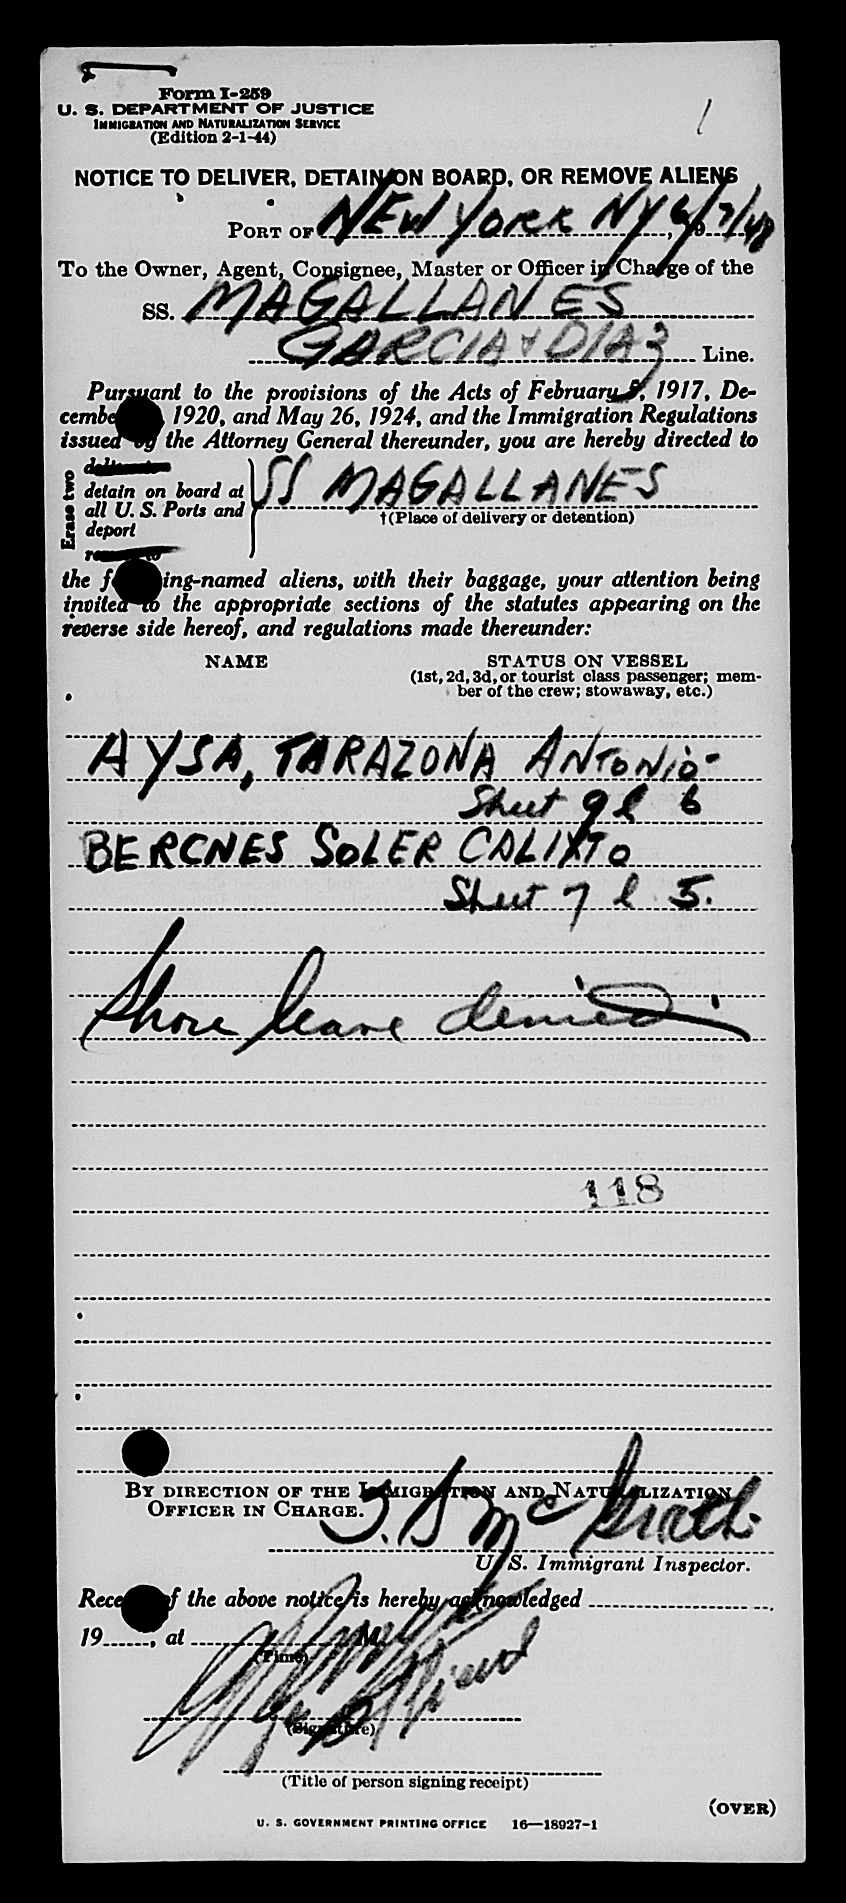 Form I-259
U. S. DEPARTMENT OF JUSTICE
IMMIGRATION AND NATURALIZATION SERVICE
(Edition 2-1-44)
1
NOTICE TO DELIVER, DETAIN ON BOARD, OR REMOVE ALIENS
PORT OF NEW YORK NY 6/7/48
To the Owner, Agent, Consignee, Master or Officer in Charge of the
SS. MAGALLANES
GARCIA & DIAZ Line.
Pursuant to the provisions of the Acts of February 5, 1917, De-
cembe 1920, and May 26, 1924, and the Immigration Regulations
issued by the Attorney General thereunder, you are hereby directed to
Erase two
detain on board at
all U. S. Ports and
deport
SS MAGALLANES
†(Place of delivery or detention)
the f ing-named aliens, with their baggage, your attention being
invited to the appropriate sections of the statutes appearing on the
reverse side hereof, and regulations made thereunder:
NAME STATUS ON VESSEL
(1st, 2d, 3d, or tourist class passenger; mem-
ber of the crew; stowaway, etc.)
AYSA, TARAZONA ANTONIO-
Sheet 9 l 6
BERCNES SOLER CALIXTO
Sheet 7 l 5.
Shore leave denied
118
BY DIRECTION OF THE IMMIGRATION AND NATURALIZATION
OFFICER IN CHARGE.
McGrath
U. S. Immigrant Inspector.
Rece of the above notice is hereby acknowledged
19 , at M.
(Time)
(Signature)
(Title of person signing receipt)
(OVER)
U. S. GOVERNMENT PRINTING OFFICE 16—18927-1